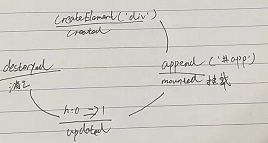 createElement('div')
created
destoryed
append('#app')
mounted 挂载
n=0 => 1
updated